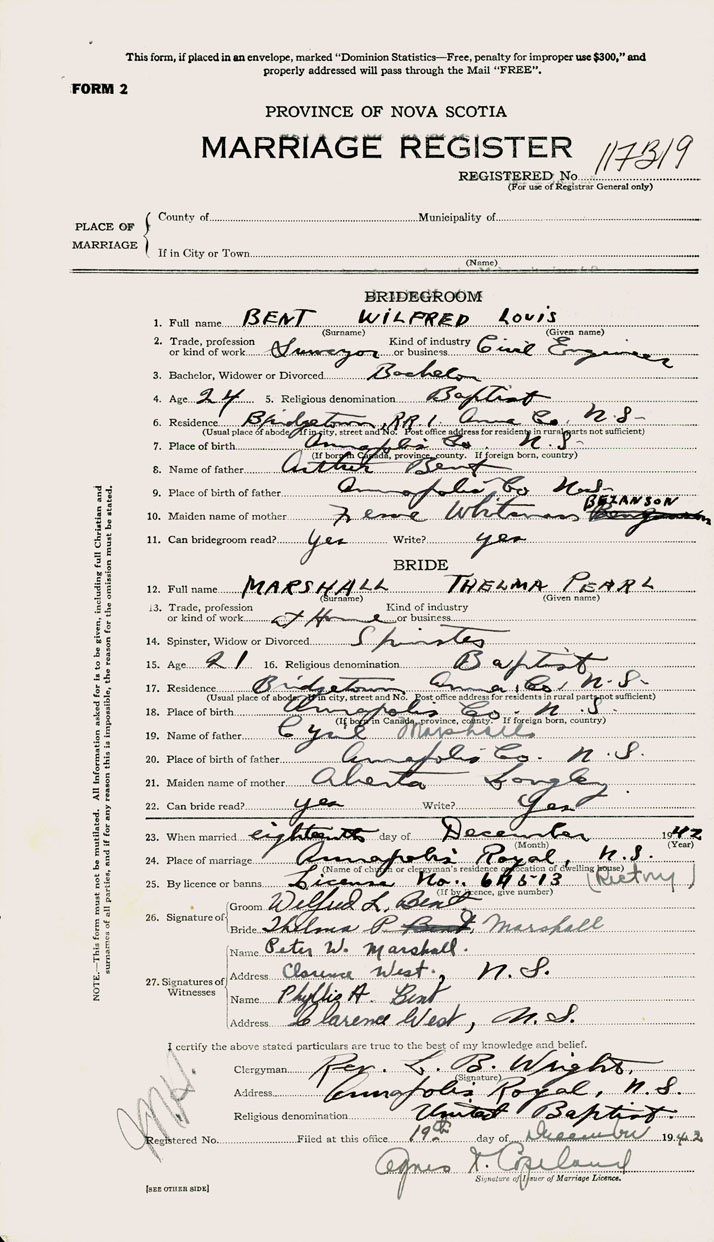 This form, if placed in an envelope, marked "Dominion Statistics—Free, penalty for improper use $300," and
properly addressed will pass through the Mail "FREE".
FORM 2
PROVINCE OF NOVA SCOTIA
MARRIAGE REGISTER
REGISTERED No. 117319
(For use of Registrar General only)
PLACE OF MARRIAGE
County of Municipality of
If in City or Town
(Name)
BRIDEGROOM
1. Full name BENT WILFRED LOUIS
(Surname) (Given name)
2. Trade, profession or kind of work Surveyor Kind of industry or business Civil Engineer
3. Bachelor, Widower or Divorced Bachelor
4. Age 24 5. Religious denomination Baptist
6. Residence Bridgetown, RR 1 Anna Co. N.S.
(Usual place of abode. If in city, street and No. Post office address for residents in rural parts not sufficient)
7. Place of birth Annapolis Co. N.S.
(If born in Canada, province, county. If foreign born, country)
8. Name of father Arthur Bent
9. Place of birth of father Annapolis Co N.S.
BEZANSON
10. Maiden name of mother Whitman
11. Can bridegroom read? yes Write? yes
BRIDE
12. Full name MARSHALL THELMA PEARL
(Surname) (Given name)
13. Trade, profession or kind of work at Home Kind of industry or business
14. Spinster, Widow or Divorced Spinster
15. Age 21 16. Religious denomination Baptist
17. Residence Bridgetown Anna. Co. N.S.
(Usual place of abode. If in city, street and No. Post office address for residents in rural parts not sufficient)
18. Place of birth Annapolis Co. N.S.
(If born in Canada, province, county. If foreign born, country)
19. Name of father Cyril Marshall
20. Place of birth of father Annapolis Co. N.S.
21. Maiden name of mother Alberta Longley
22. Can bride read? yes Write? Yes
23. When married eighteenth day of December 1942
(Month) (Year)
24. Place of marriage Annapolis Royal, N.S.
(Name of church or clergyman's residence or location of dwelling house)
25. By licence or banns License No. 64513 (Rectory)
(If by licence, give number)
26. Signature of Groom Wilfred L. Bent
Bride Thelma P. Bent, Marshall
27. Signatures of Witnesses Name Peter W. Marshall.
Address Clarence West, N.S.
Name Phyllis A. Bent
Address Clarence West, N.S.
I certify the above stated particulars are true to the best of my knowledge and belief.
Clergyman Rev. L. B. Wright.
(Signature)
Address Annapolis Royal, N.S.
Religious denomination United Baptist.
Registered No. Filed at this office 19th day of December 1942
Agnes Copeland
Signature of Issuer of Marriage Licence.
[SEE OTHER SIDE]
NOTE.—This form must not be mutilated. All information asked for is to be given, including full Christian and
surnames of all parties, and if for any reason this is impossible, the reason for the omission must be stated.